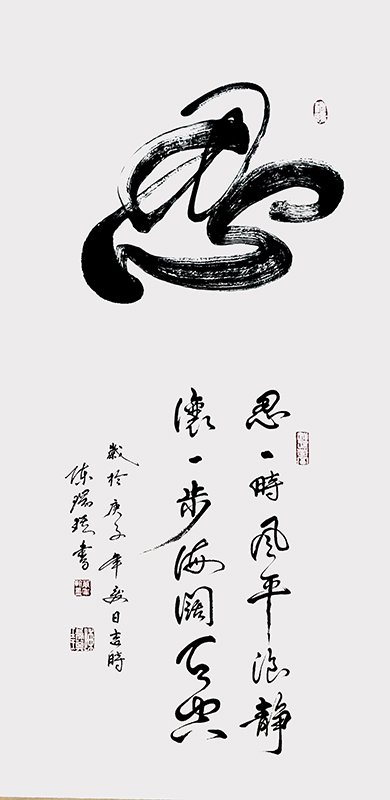 忍
忍一時风平浪靜
讓一步海闊天空
歲於庚子年夏日吉時
陈瑞書